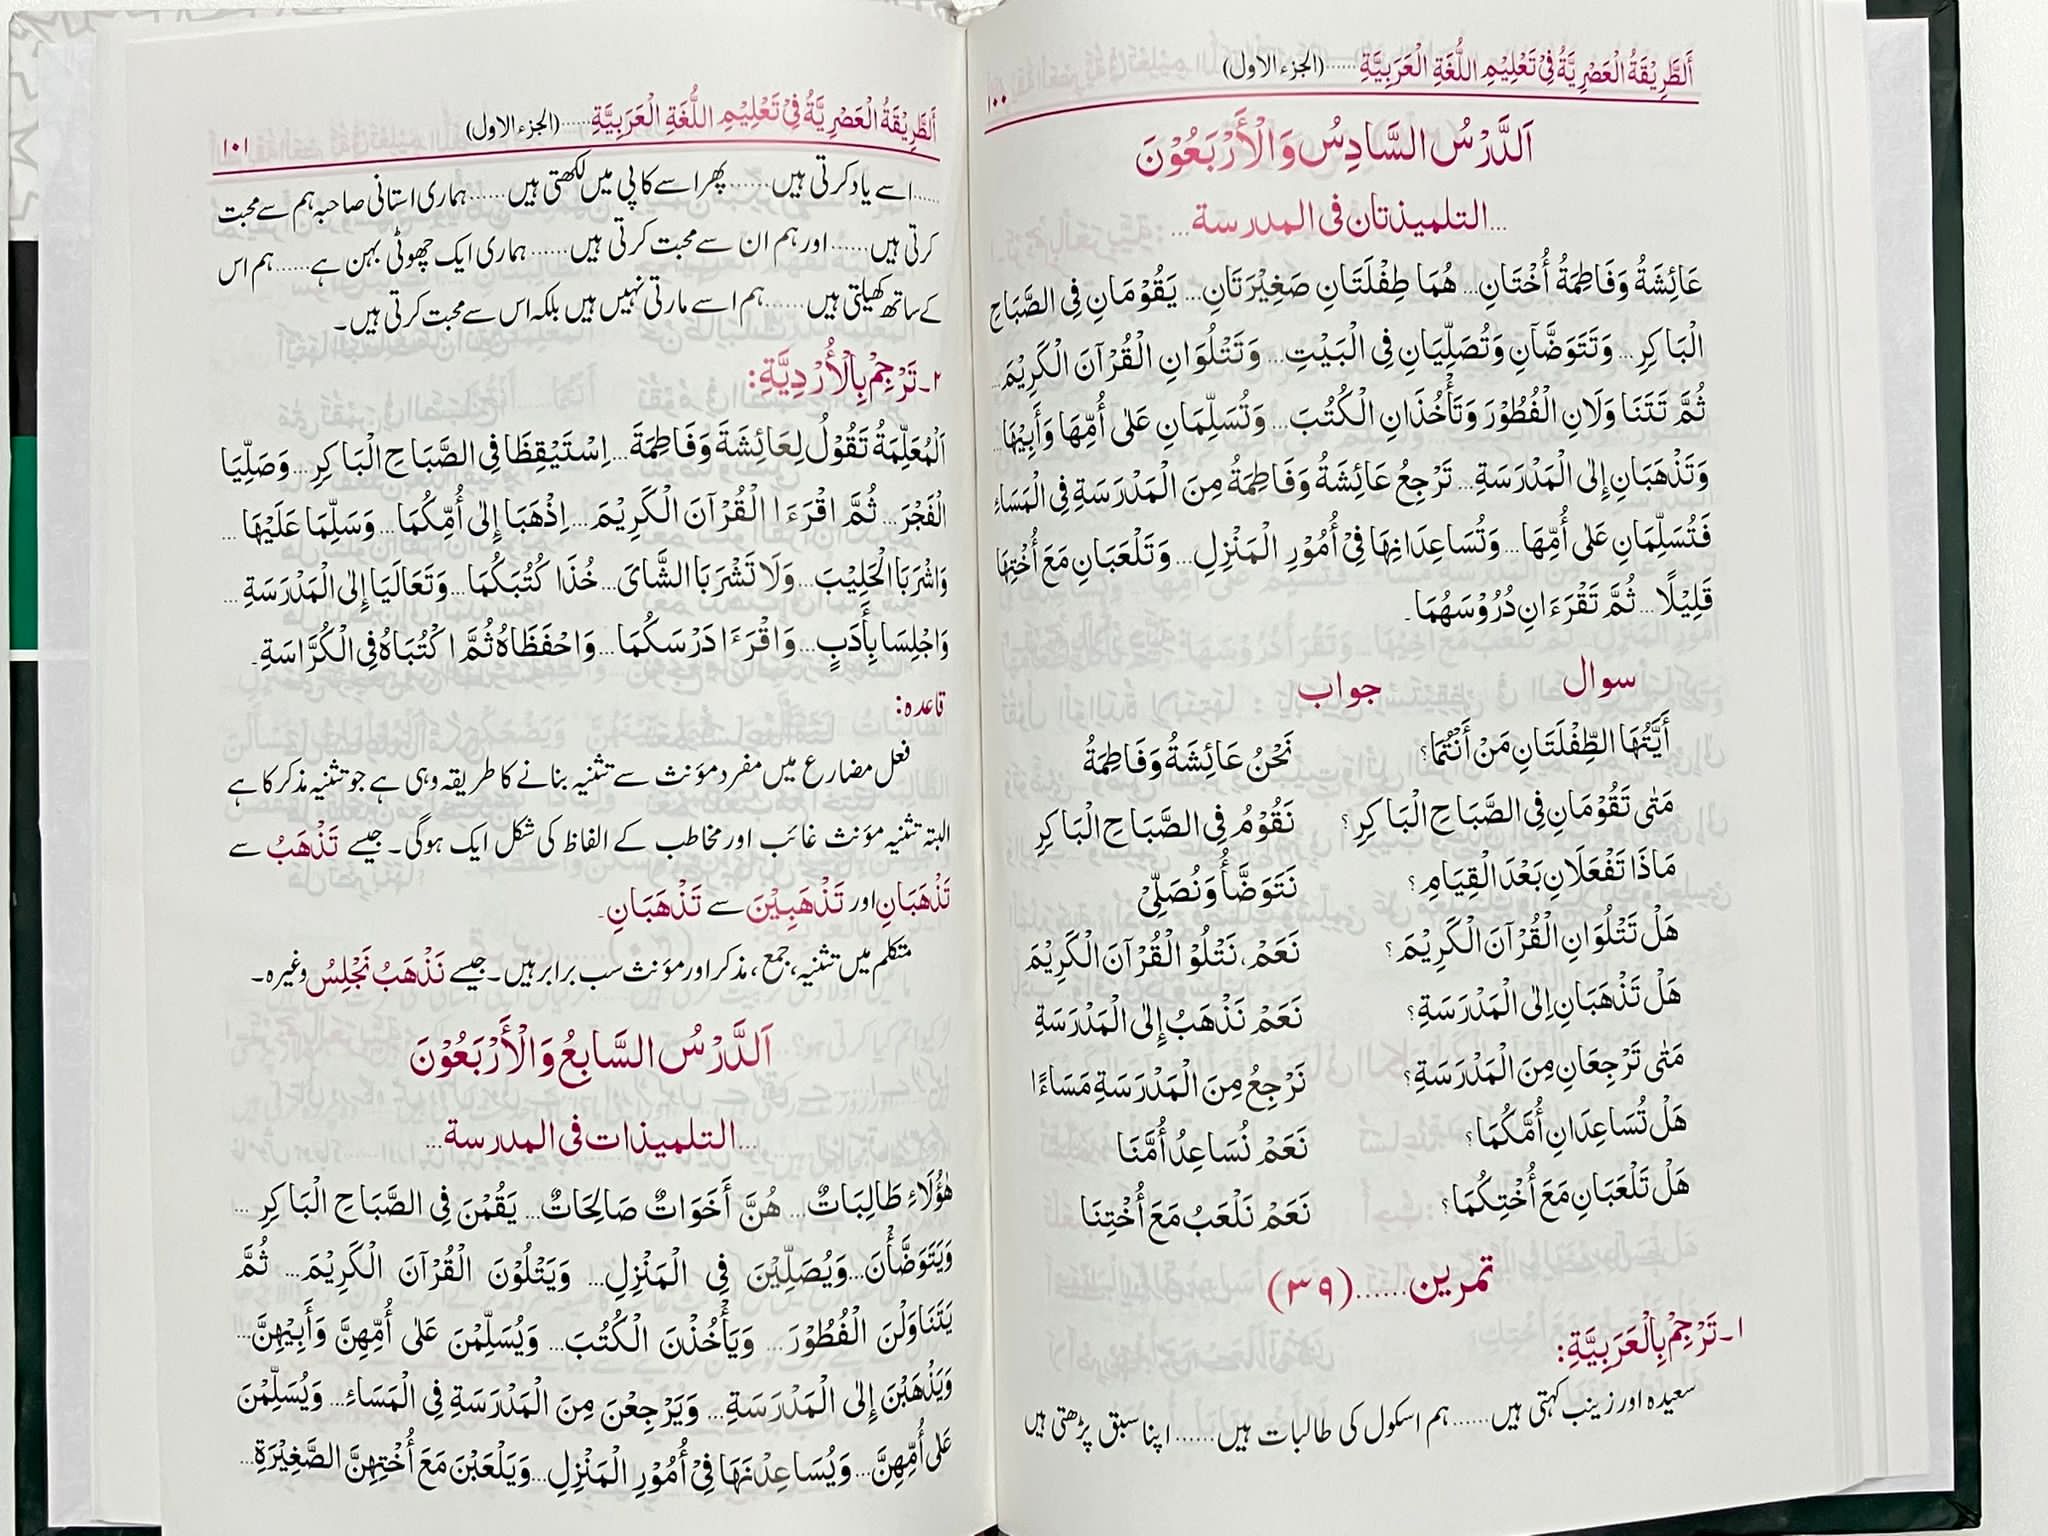 اَلطَّرِيْقَةُ الْعَصْرِيَّةُ فِيْ تَعْلِيْمِ اللُّغَةِ الْعَرَبِيَّةِ......(الجزء الاول) ١٠٠
اَلدَّرْسُ السَّادِسُ وَالْأَرْبَعُوْنَ
...التلميذتان فى المدرسة...
عَائِشَةُ وَفَاطِمَةُ أُخْتَانِ... هُمَا طِفْلَتَانِ صَغِيْرَتَانِ... يَقُوْمَانِ فِي الصَّبَاحِ
الْبَاكِرِ... وَتَتَوَضَّآنِ وَتُصَلِّيَانِ فِي الْبَيْتِ... وَتَتْلُوَانِ الْقُرْآنَ الْكَرِيْمَ...
ثُمَّ تَتَنَاوَلَانِ الْفُطُوْرَ وَتَأْخُذَانِ الْكُتُبَ... وَتُسَلِّمَانِ عَلىٰ أُمِّهَا وَأَبِيْهَا...
وَتَذْهَبَانِ إِلىٰ الْمَدْرَسَةِ... تَرْجِعُ عَائِشَةُ وَفَاطِمَةُ مِنَ الْمَدْرَسَةِ فِي الْمَسَاءِ
فَتُسَلِّمَانِ عَلىٰ أُمِّهَا... وَتُسَاعِدَانِهَا فِيْ أُمُوْرِ الْمَنْزِلِ... وَتَلْعَبَانِ مَعَ أُخْتِهَا
قَلِيْلًا... ثُمَّ تَقْرَءَانِ دُرُوْسَهُمَا۔
سوال جواب
أَيَّتُهَا الطِّفْلَتَانِ مَنْ أَنْتُمَا؟ نَحْنُ عَائِشَةُ وَفَاطِمَةُ
مَتٰى تَقُوْمَانِ فِي الصَّبَاحِ الْبَاكِرِ؟ نَقُوْمُ فِي الصَّبَاحِ الْبَاكِرِ
مَاذَا تَفْعَلَانِ بَعْدَ الْقِيَامِ؟ نَتَوَضَّأُ وَنُصَلِّيْ
هَلْ تَتْلُوَانِ الْقُرْآنَ الْكَرِيْمَ؟ نَعَمْ، نَتْلُوْ الْقُرْآنَ الْكَرِيْمَ
هَلْ تَذْهَبَانِ إِلىٰ الْمَدْرَسَةِ؟ نَعَمْ نَذْهَبُ إِلىٰ الْمَدْرَسَةِ
مَتٰى تَرْجِعَانِ مِنَ الْمَدْرَسَةِ؟ نَرْجِعُ مِنَ الْمَدْرَسَةِ مَسَاءًا
هَلْ تُسَاعِدَانِ أُمَّكُمَا؟ نَعَمْ نُسَاعِدُ أُمَّنَا
هَلْ تَلْعَبَانِ مَعَ أُخْتِكُمَا؟ نَعَمْ نَلْعَبُ مَعَ أُخْتِنَا
تمرين......(٣٩)
١۔تَرْجِمْ بِالْعَرَبِيَّةِ:
سعیدہ اور زینب کہتی ہیں......ہم اسکول کی طالبات ہیں......اپنا سبق پڑھتی ہیں
اَلطَّرِيْقَةُ الْعَصْرِيَّةُ فِيْ تَعْلِيْمِ اللُّغَةِ الْعَرَبِيَّةِ......(الجزء الاول) ١٠١
......اسے یاد کرتی ہیں......پھر اسے کاپی میں لکھتی ہیں......ہماری استانی صاحبہ ہم سے محبت
کرتی ہیں......اور ہم ان سے محبت کرتی ہیں......ہماری ایک چھوٹی بہن ہے......ہم اس
کے ساتھ کھیلتی ہیں......ہم اسے مارتی نہیں ہیں بلکہ اس سے محبت کرتی ہیں۔
٢۔تَرْجِمْ بِالْأُرْدِيَّةِ:
اَلْمُعَلِّمَةُ تَقُوْلُ لِعَائِشَةَ وَفَاطِمَةَ... اِسْتَيْقِظَا فِي الصَّبَاحِ الْبَاكِرِ... وَصَلِّيَا
الْفَجْرَ... ثُمَّ اقْرَءَا الْقُرْآنَ الْكَرِيْمَ... اِذْهَبَا إِلىٰ أُمِّكُمَا... وَسَلِّمَا عَلَيْهَا...
وَاشْرَبَا الْحَلِيْبَ... وَلَا تَشْرَبَا الشَّاىَ... خُذَا كُتُبَكُمَا... وَتَعَالَيَا إِلىٰ الْمَدْرَسَةِ...
وَاجْلِسَا بِأَدَبٍ... وَاقْرَءَا دَرْسَكُمَا... وَاحْفَظَاهُ ثُمَّ اكْتُبَاهُ فِي الْكُرَّاسَةِ۔
قاعدہ:
فعل مضارع میں مفرد مؤنث سے تثنیہ بنانے کا طریقہ وہی ہے جو تثنیہ مذکر کا ہے
البتہ تثنیہ مؤنث غائب اور مخاطب کے الفاظ کی شکل ایک ہوگی۔ جیسے تَذْهَبُ سے
تَذْهَبَانِ اور تَذْهَبِيْنَ سے تَذْهَبَانِ۔
متکلم میں تثنیہ، جمع، مذکر اور مؤنث سب برابر ہیں۔ جیسے نَذْهَبُ نَجْلِسُ وغیرہ۔
اَلدَّرْسُ السَّابِعُ وَالْأَرْبَعُوْنَ
...التلميذات فى المدرسة...
هٰؤُلَاءِ طَالِبَاتٌ... هُنَّ أَخَوَاتٌ صَالِحَاتٌ... يَقُمْنَ فِي الصَّبَاحِ الْبَاكِرِ...
وَيَتَوَضَّأْنَ... وَيُصَلِّيْنَ فِي الْمَنْزِلِ... وَيَتْلُوْنَ الْقُرْآنَ الْكَرِيْمَ... ثُمَّ
يَتَنَاوَلْنَ الْفُطُوْرَ... وَيَأْخُذْنَ الْكُتُبَ... وَيُسَلِّمْنَ عَلىٰ أُمِّهِنَّ وَأَبِيْهِنَّ...
وَيَذْهَبْنَ إِلىٰ الْمَدْرَسَةِ... وَيَرْجِعْنَ مِنَ الْمَدْرَسَةِ فِي الْمَسَاءِ... وَيُسَلِّمْنَ
عَلىٰ أُمِّهِنَّ... وَيُسَاعِدْنَهَا فِيْ أُمُوْرِ الْمَنْزِلِ... وَيَلْعَبْنَ مَعَ أُخْتِهِنَّ الصَّغِيْرَةِ...